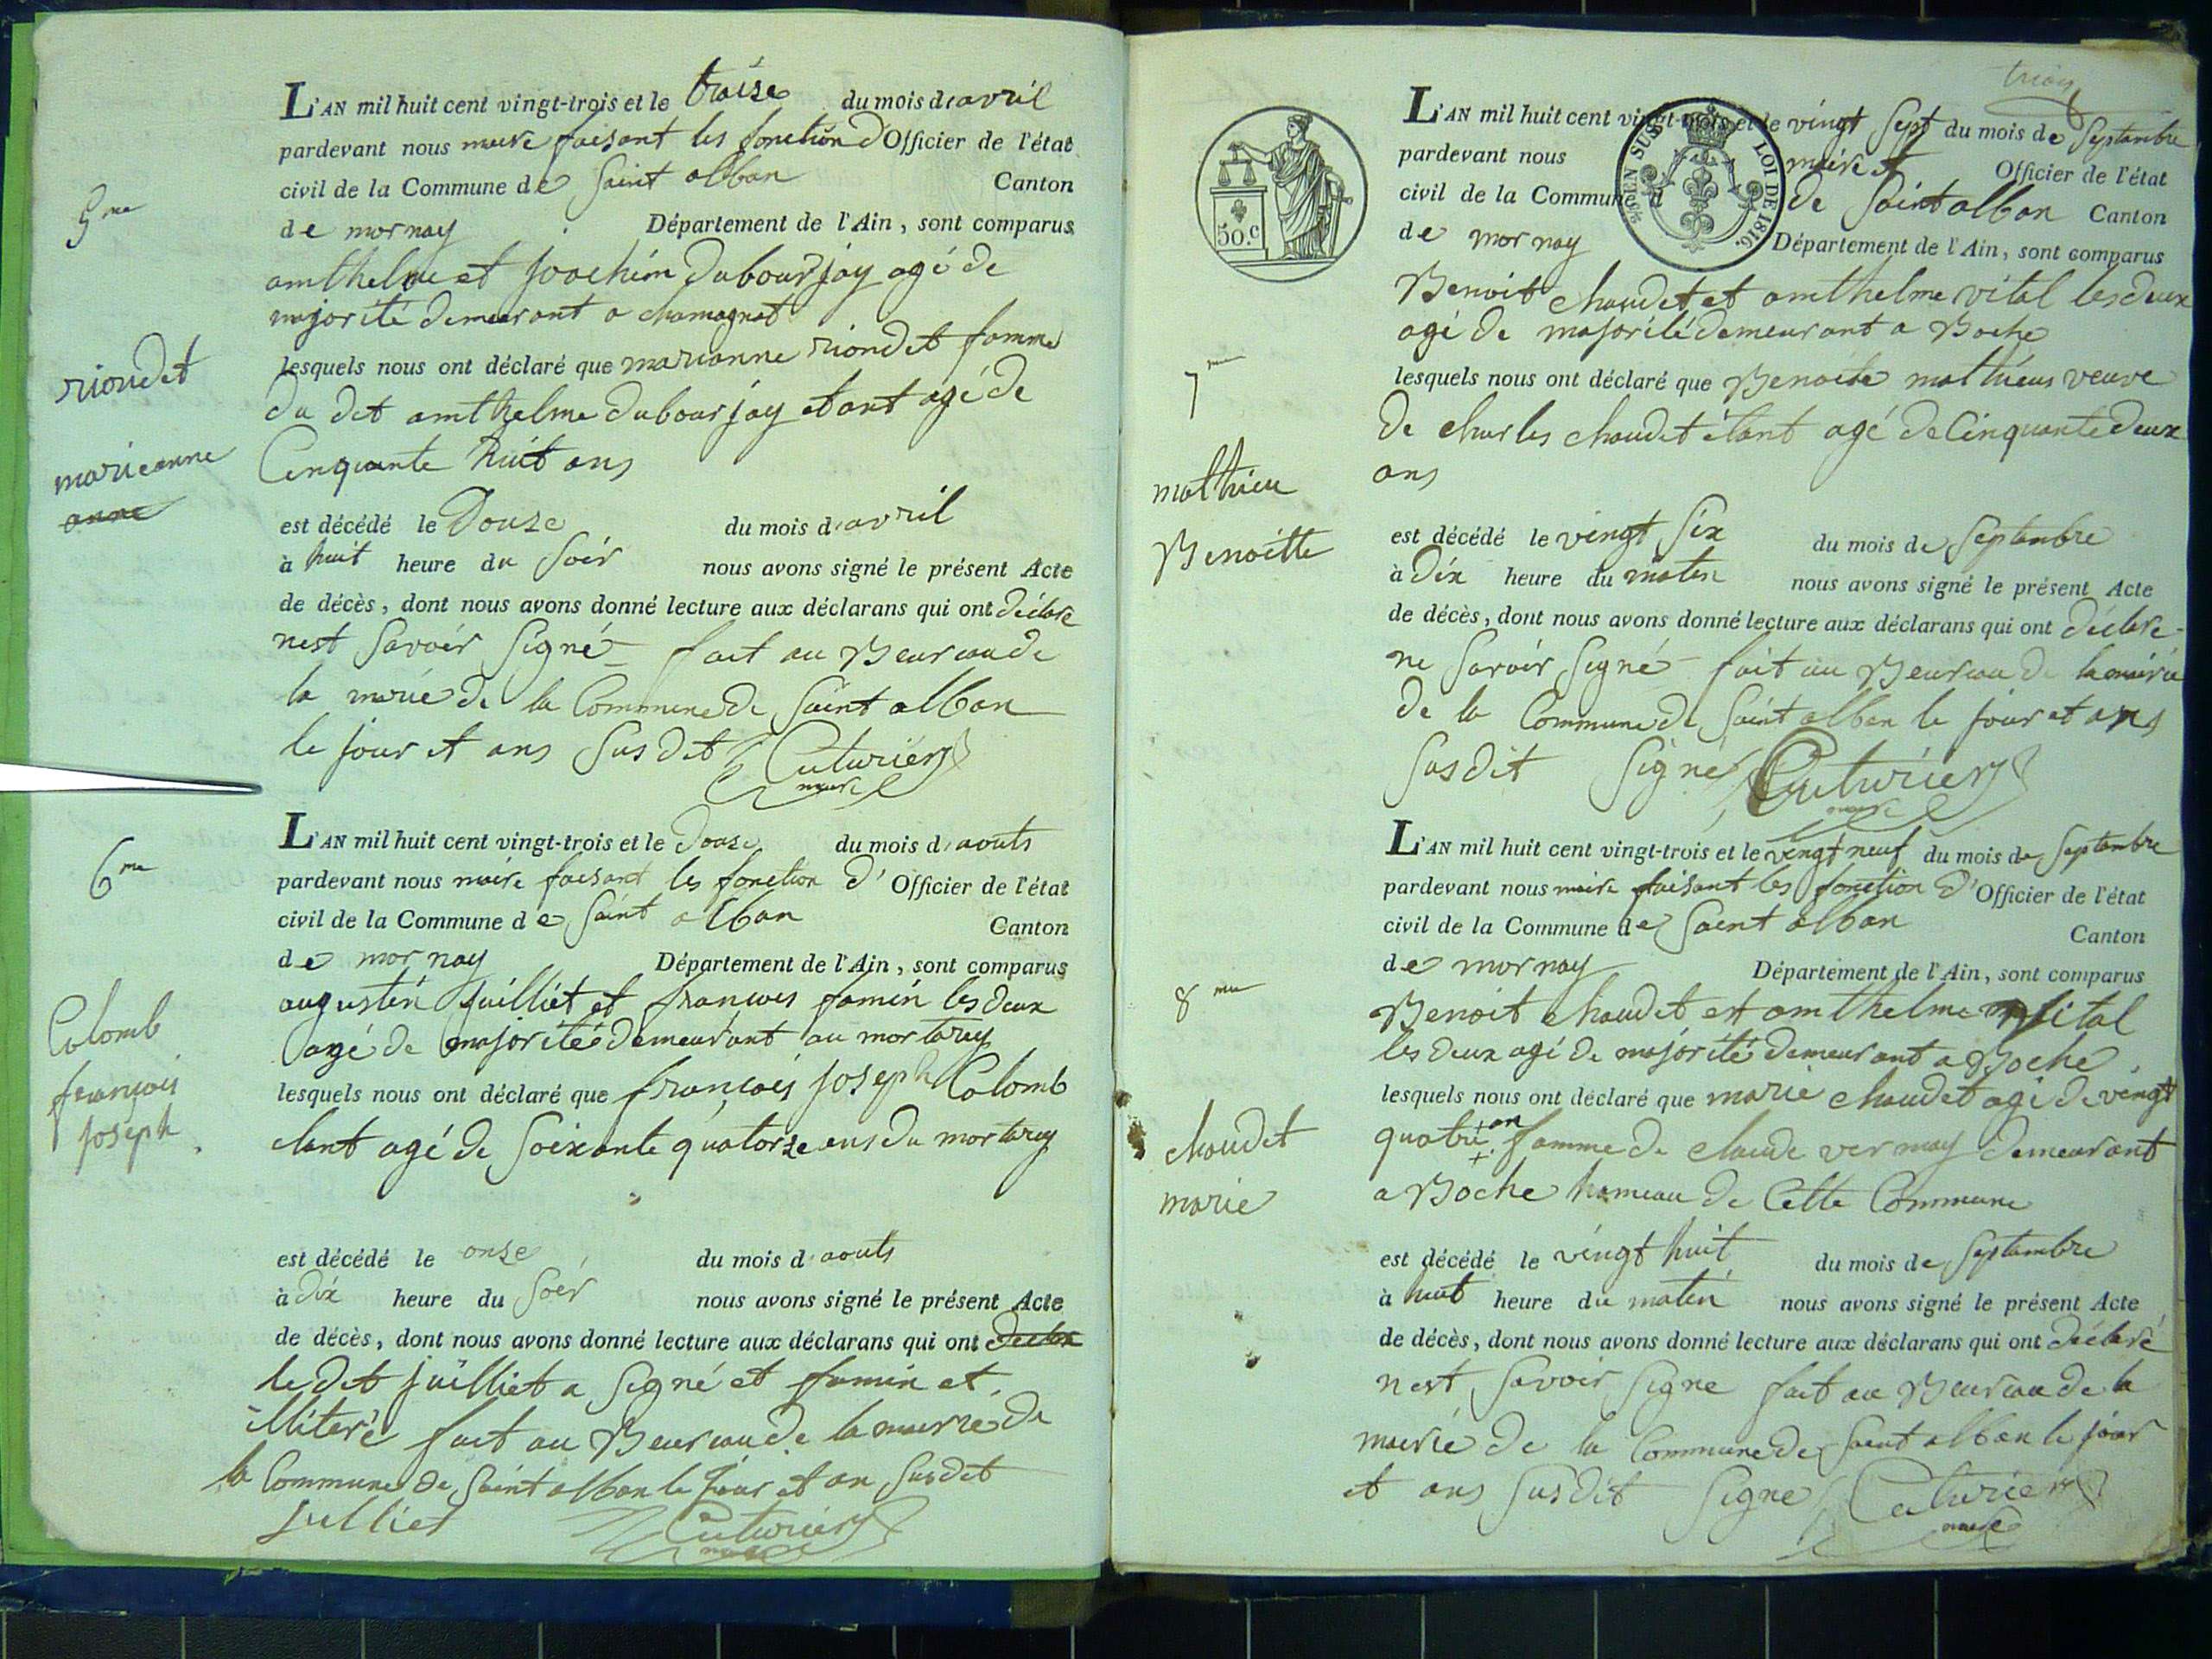 5me
riondet
marieanne
anne
L'AN mil huit cent vingt-trois et le traise du mois d'avril
pardevant nous maire faisant les fonction d'Officier de l'état
civil de la Commune de Saint alban Canton
de mornay Département de l'Ain, sont comparus
amthelme et joachim dubourjay agé de
majorité demeurant a chamagnat
lesquels nous ont déclaré que marianne riondet famme
du dit amthelme dubourjay etant agé de
Cinquante huit ans
est décédé le Douze du mois d'avril
à huit heure du Soir nous avons signé le présent Acte
de décès, dont nous avons donné lecture aux déclarans qui ont déclare
nest Savoir Signé fait au Beuraude
la marie de la Commune de Saint alban
le jour et ans Susdit Cuturier
maire
6me
Colomb
francois
joseph
L'AN mil huit cent vingt-trois et le Douze du mois d'aouts
pardevant nous maire faisant les fonction d'Officier de l'état
civil de la Commune de Saint alban Canton
de mornay Département de l'Ain, sont comparus
augustin juilliet et francois famin les deux
agé de majoritée demeurant au mortaray
lesquels nous ont déclaré que françois joseph Colomb
etant agé de Soixante quatorze ans du mortaray
est décédé le onze du mois d'aouts
à dix heure du Soir nous avons signé le présent Acte
de décès, dont nous avons donné lecture aux déclarans qui ont declare
le dit juilliet a Signé et famin et
illiteré fait au Beurau de la mairie de
la Commune de Saint alban le jour et an Susdit
Julliet Cuturier
maire
trois
50.C
EN SUS LOI DE 1816.
7me
mathieu
Benoitte
L'AN mil huit cent vingt-trois et le vingt Sept du mois de Septambre
pardevant nous maire et Officier de l'état
civil de la Commune d de Saint alban Canton
de mornay Département de l'Ain, sont comparus
Benoit chaudet et amthelme vital les deux
agé de majorité demeurant a Boche
lesquels nous ont déclaré que Benoite mathieus veuve
de charles chaudet étant agé de Cinquante deux
ans
est décédé le vingt Six du mois de Septambre
à Dix heure du matin nous avons signé le présent Acte
de décès, dont nous avons donné lecture aux déclarans qui ont déclare
ne Savoir Signé fait au Beurau de la mairie
de la Commune de Saint alban le jour et ans
Susdit Signé Cuturier
maire
8me
chaudet
marie
L'AN mil huit cent vingt-trois et le vengt neuf du mois de Septambre
pardevant nous maire faisant les fonction d'Officier de l'état
civil de la Commune de Saint alban Canton
de mornay Département de l'Ain, sont comparus
Benoit chaudet et amthelme vital
les deux agé de majorité demeurant a Boche
lesquels nous ont déclaré que marie chaudet agé de vingt
quatre an famme de claude vermay demeurant
a Boche hameau de Cette Commune
est décédé le vingt huit du mois de Septambre
à huit heure du matin nous avons signé le présent Acte
de décès, dont nous avons donné lecture aux déclarans qui ont déclaré
nest Savoir Signe fait au Beurau de la
mairie de la Commune de Saint alban le jour
et ans Susdit Signe Cuturier
maire